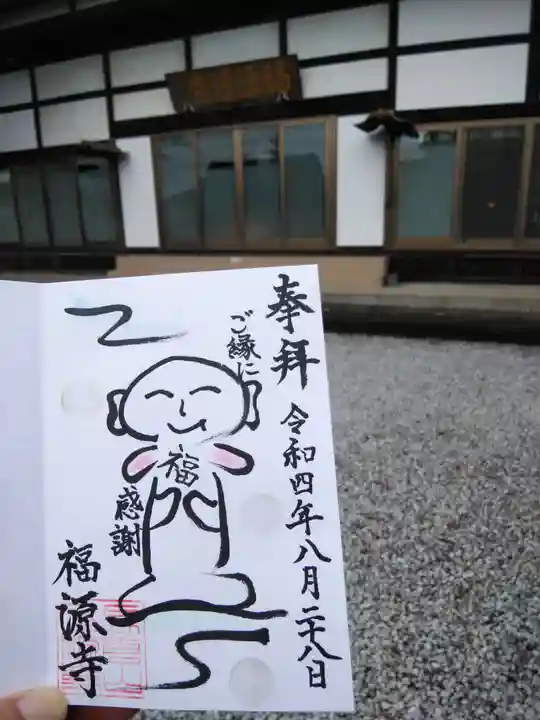 奉拝
令和四年八月二十八日
ご縁に
福
感謝
福源寺